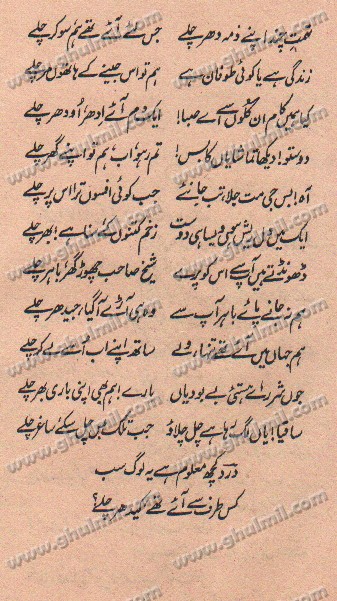 تہمت چند اپنے ذمہ دھر چلے جس لئے آئے تھے ہم سو کر چلے
زندگی ہے یا کوئی طوفان ہے ہم تو اس جینے کے ہاتھوں مر چلے
کیا ہمیں کام ان گلوں سے اے صبا! ایک دم آئے اِدھر، اُودھر چلے
دوستو! دیکھا تماشا یاں کا بس! تم رہو اب ہم تو اپنے گھر چلے
آہ! بس جی مت جلا، تب جانئے جب کوئی افسوں ترا اس پر چلے
ایک میں دل ریش ہوں ویسا ہی دوست زخم کتنوں کے سنا ہے! بھر چلے
ڈھونڈتے ہیں آپ سے اس کو پرے شیخ صاحب چھوڑ گھر، باہر چلے
ہم نہ جانے پائے باہر آپ سے وہ ہی آڑے آگیا، جیدھر چلے
ہم جہاں میں آئے تھے تنہا، ولے ساتھ اپنے اب اُسے لے کر چلے
جوں شرر اے ہستئ بے بود یاں بارے! ہم بھی اپنی باری بھر چلے
ساقیا! یاں لگ رہا ہے چل چلاؤ جب تلک بس چل سکے ساغر چلے
درد کچھ معلوم ہے یہ لوگ سب
کس طرف سے آئے تھے کیدھر چلے؟
www.ghulmil.com